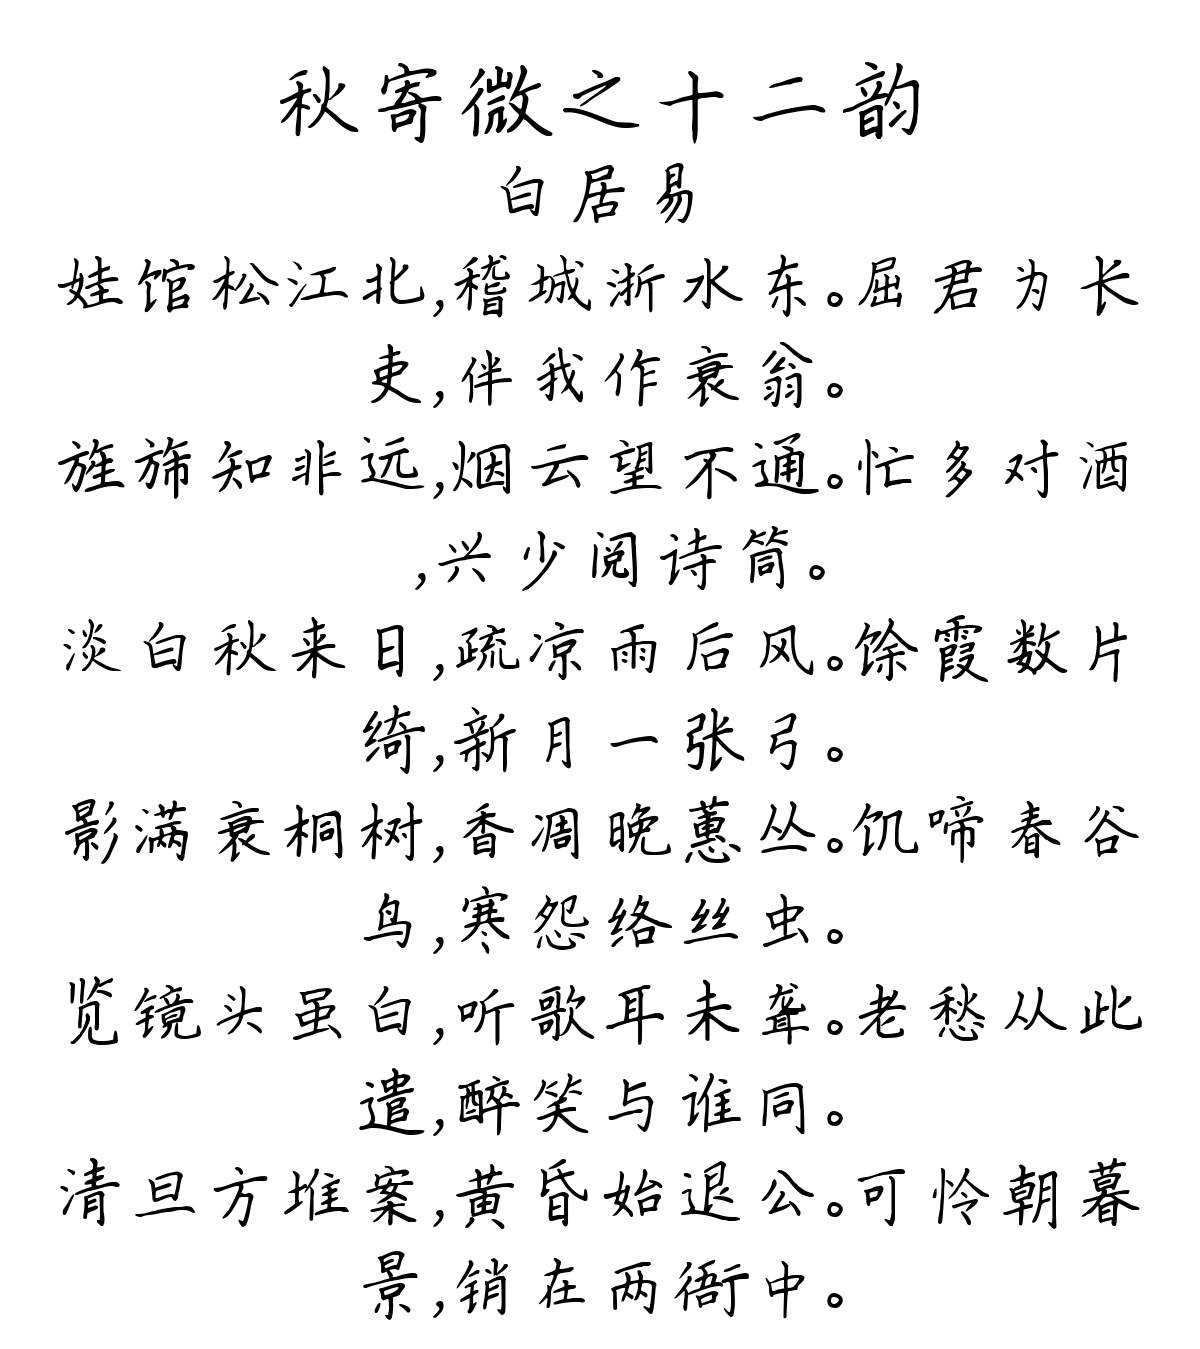 秋寄微之十二韵
白居易
娃馆松江北,稽城浙水东。屈君为长
吏,伴我作衰翁。
旌旆知非远,烟云望不通。忙多对酒
,兴少阅诗筒。
淡白秋来日,疏凉雨后风。馀霞数片
绮,新月一张弓。
影满衰桐树,香凋晚蕙丛。饥啼春谷
鸟,寒怨络丝虫。
览镜头虽白,听歌耳未聋。老愁从此
遣,醉笑与谁同。
清旦方堆案,黄昏始退公。可怜朝暮
景,销在两衙中。